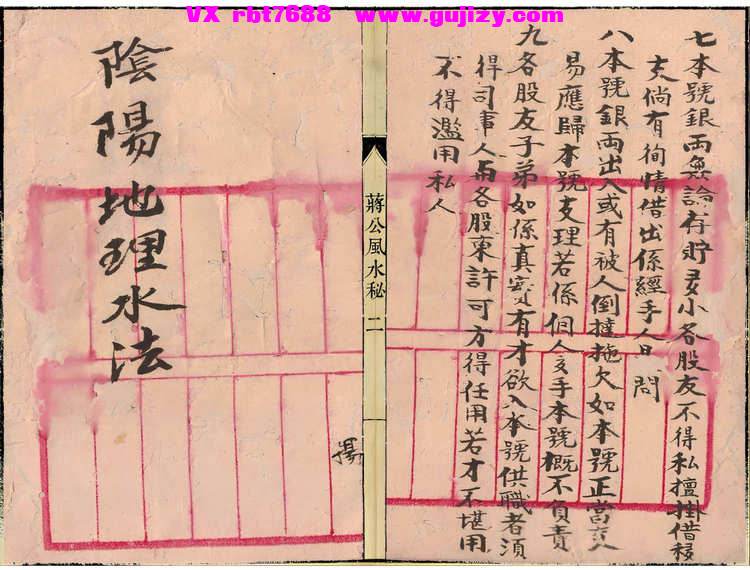 VX rbt7688 www.gujizy.com
七本號銀兩無論存貯多小各股友不得私擅掛借移
支倘有徇情借出係經手人自問
八本號銀兩出入或有被人倒撻拖欠如本號正當交
易應歸本號支理若係個人交手本號概不負責
九各股友子弟如係真實有才欲入本號供職者須
得司事人兩各股東許可方得任用若才不堪用
不得濫用私人
蔣公風水秘 二
陰陽地理水法